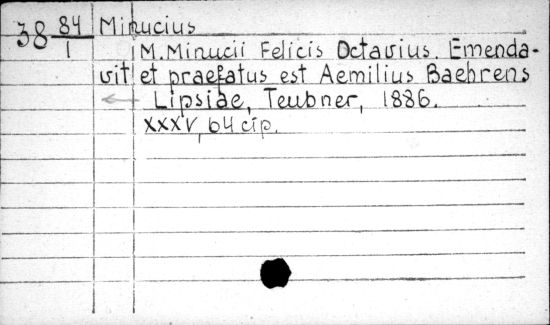 38 84/1 Minucius
M. Minucii Felicis Octavius. Emenda-
vit et praefatus est Aemilius Baehrens
Lipsiae, Teubner, 1886.
XXXV, 64 cтр.